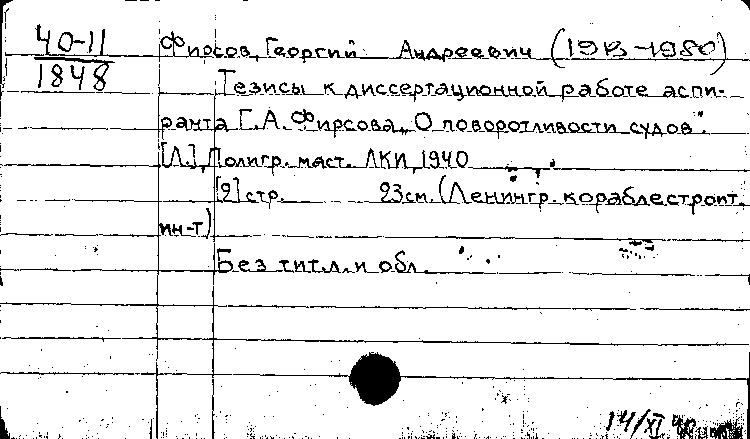 40-11
1848
Фирсов, Георгий Андреевич (1913-1980)
Тезисы к диссертационной работе аспи-
ранта Г.А. Фирсова „О поворотливости судов".
[Л.], Полигр. маст. ЛКИ, 1940
[2] стр. 23см. (Ленингр. кораблестроит.
ин-т)
Без тит. л. и обл.
14/XI 40